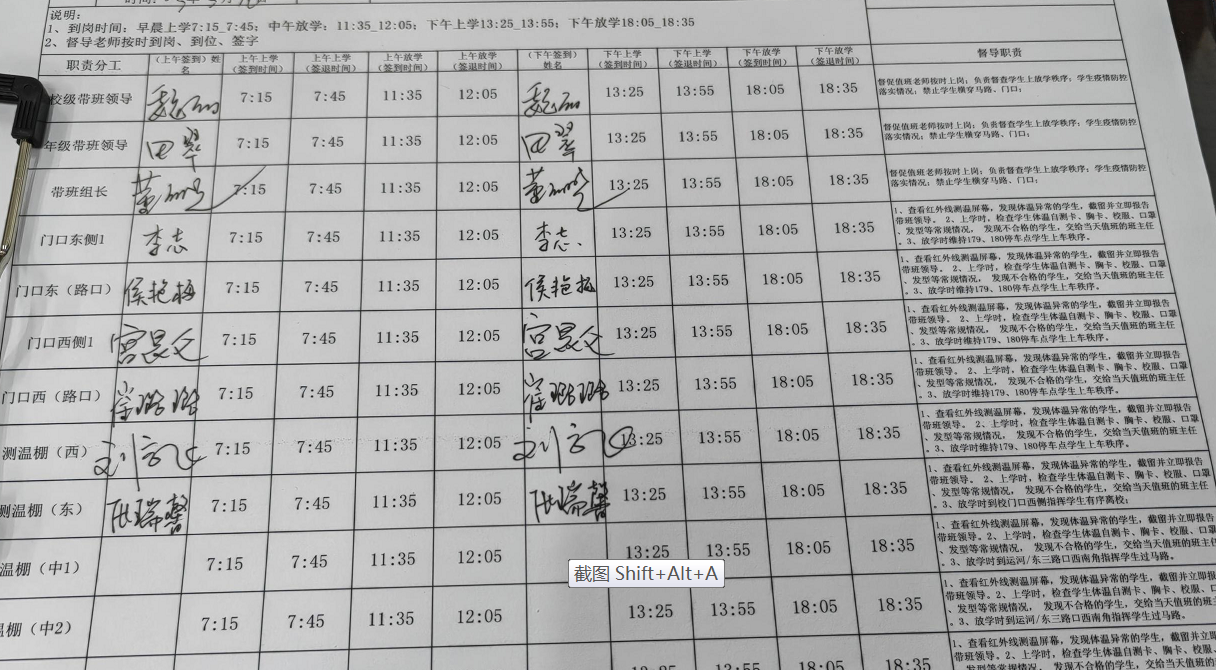 说明:
1、到岗时间:早晨上学7:15_7:45;中午放学:11:35_12:05;下午上学13:25_13:55;下午放学18:05_18:35
2、督导老师按时到岗、到位、签字
职责分工 (上午签到)姓名 上午上学(签到时间) 上午上学(签退时间) 上午放学(签到时间) 上午放学(签退时间) (下午签到)姓名 下午上学(签到时间) 下午上学(签退时间) 下午放学(签到时间) 下午放学(签退时间) 督导职责
校级带班领导 7:15 7:45 11:35 12:05 13:25 13:55 18:05 18:35
督促值班老师按时上岗;负责督查学生上放学秩序;学生疫情防控
落实情况;禁止学生横穿马路、门口;
年级带班领导 田翠 7:15 7:45 11:35 12:05 田翠 13:25 13:55 18:05 18:35
督促值班老师按时上岗;负责督查学生上放学秩序;学生疫情防控
落实情况;禁止学生横穿马路、门口;
带班组长 7:15 7:45 11:35 12:05 13:25 13:55 18:05 18:35
督促值班老师按时上岗;负责督查学生上放学秩序;学生疫情防控
落实情况;禁止学生横穿马路、门口;
门口东侧1 李志 7:15 7:45 11:35 12:05 李志 13:25 13:55 18:05 18:35
1、查看红外线测温屏幕,发现体温异常的学生,截留并立即报告
带班领导。 2、上学时,检查学生体温自测卡、胸卡、校服、口罩
、发型等常规情况, 发现不合格的学生,交给当天值班的班主任
。3、放学时维持179、180停车点学生上车秩序。
门口东(路口) 侯艳梅 7:15 7:45 11:35 12:05 侯艳梅 13:25 13:55 18:05 18:35
1、查看红外线测温屏幕,发现体温异常的学生,截留并立即报告
带班领导。 2、上学时,检查学生体温自测卡、胸卡、校服、口罩
、发型等常规情况, 发现不合格的学生,交给当天值班的班主任
。3、放学时维持179、180停车点学生上车秩序。
门口西侧1 7:15 7:45 11:35 12:05 13:25 13:55 18:05 18:35
1、查看红外线测温屏幕,发现体温异常的学生,截留并立即报告
带班领导。 2、上学时,检查学生体温自测卡、胸卡、校服、口罩
、发型等常规情况, 发现不合格的学生,交给当天值班的班主任
。3、放学时维持179、180停车点学生上车秩序。
门口西(路口) 7:15 7:45 11:35 12:05 13:25 13:55 18:05 18:35
1、查看红外线测温屏幕,发现体温异常的学生,截留并立即报告
带班领导。 2、上学时,检查学生体温自测卡、胸卡、校服、口罩
、发型等常规情况, 发现不合格的学生,交给当天值班的班主任
。3、放学时维持179、180停车点学生上车秩序。
测温棚(西) 7:15 7:45 11:35 12:05 13:25 13:55 18:05 18:35
1、查看红外线测温屏幕,发现体温异常的学生,截留并立即报告
带班领导。 2、上学时,检查学生体温自测卡、胸卡、校服、口罩
、发型等常规情况, 发现不合格的学生,交给当天值班的班主任
。3、放学时维持179、180停车点学生上车秩序。
测温棚(东) 7:15 7:45 11:35 12:05 13:25 13:55 18:05 18:35
1、查看红外线测温屏幕,发现体温异常的学生,截留并立即报告
带班领导。 2、上学时,检查学生体温自测卡、胸卡、校服、口罩
、发型等常规情况, 发现不合格的学生,交给当天值班的班主任
。3、放学时到校门口西侧指挥学生有序离校;
温棚(中1) 7:15 7:45 11:35 12:05 13:25 13:55 18:05 18:35
1、查看红外线测温屏幕,发现体温异常的学生,截留并立即报告
带班领导。2、上学时,检查学生体温自测卡、胸卡、校服、口罩
、发型等常规情况, 发现不合格的学生,交给当天值班的班主任
。3、放学时到运河/东三路口西南角指挥学生过马路。
截图 Shift+Alt+A
温棚(中2) 7:15 7:45 11:35 12:05 13:25 13:55 18:05 18:35
1、查看红外线测温屏幕,发现体温异常的学生,截留并立即报
带班领导。2、上学时,检查学生体温自测卡、胸卡、校服、口
、发型等常规情况, 发现不合格的学生,交给当天值班的班主
。3、放学时到运河/东三路口西南角指挥学生过马路。
13:25 13:55 18:05 18:35
1、查看红外线测温屏幕,发现体温异常的学生,截留并立即
带班领导。2、上学时,检查学生体温自测卡、胸卡、校服、